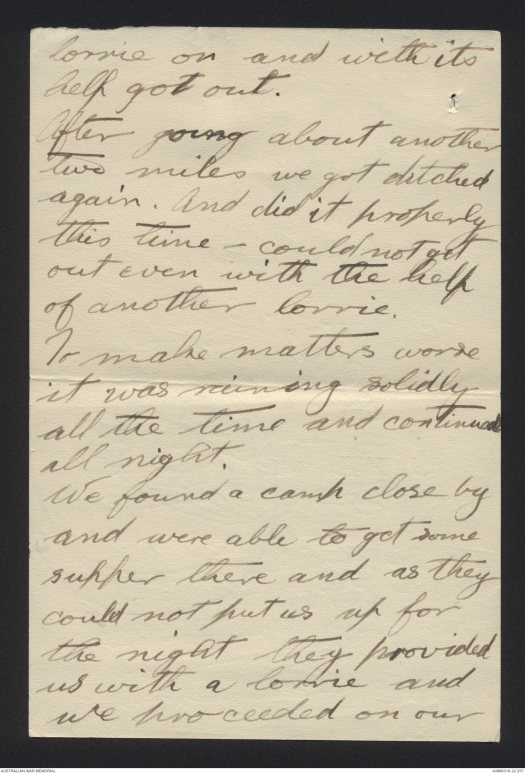 lorrie on and with its
help got out.
After going about another
two miles we got ditched
again. And did it properly
this time — could not get
out even with the help
of another lorrie.
To make matters worse
it was raining solidly
all the time and continued
all night.
We found a camp close by
and were able to get some
supper there and as they
could not put us up for
the night they provided
us with a lorrie and
we proceeded on our
AUSTRALIAN WAR MEMORIAL